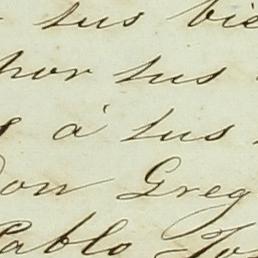 tus bie
por tus
á tus
Don Greg
Pablo Jo